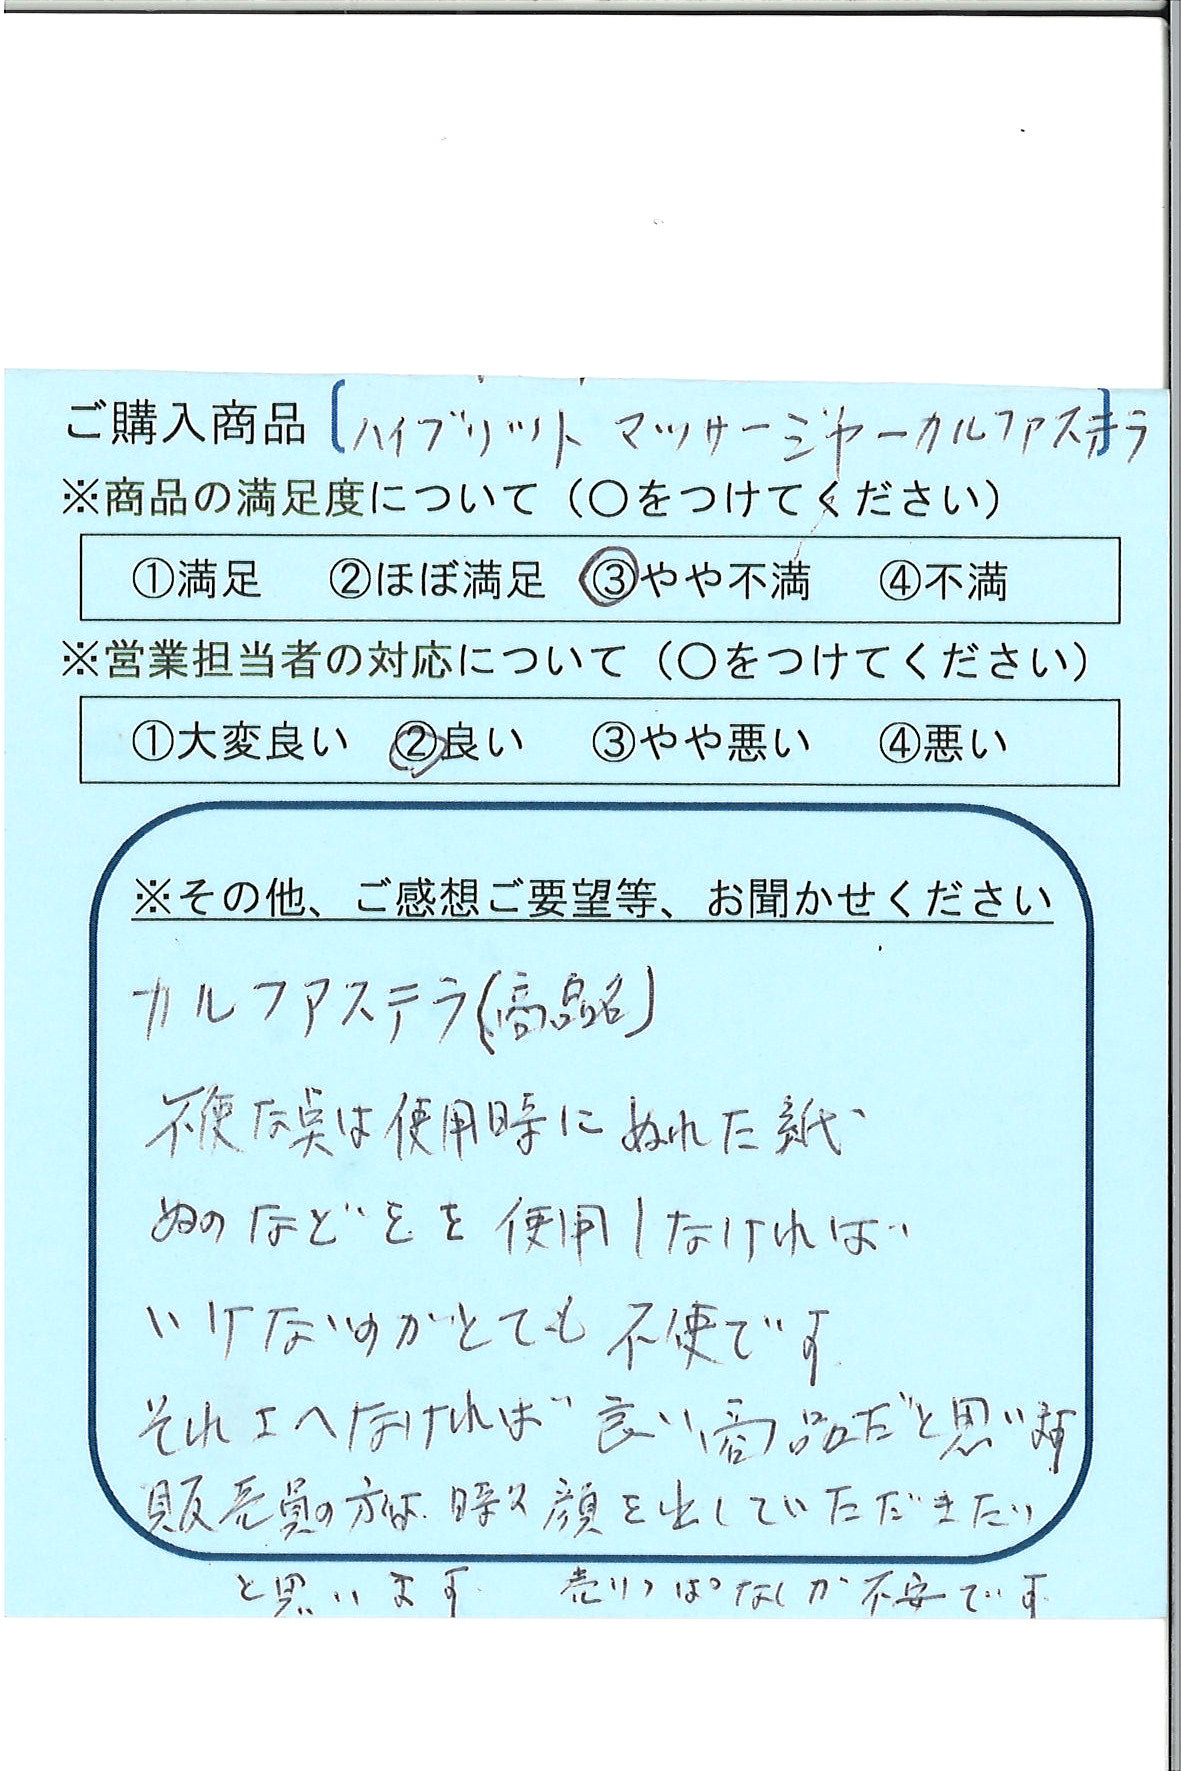 ご購入商品〔ハイブリット マッサージャーカルファステラ〕
※商品の満足度について（○をつけてください）
①満足 ②ほぼ満足 ③やや不満 ④不満
※営業担当者の対応について（○をつけてください）
①大変良い ②良い ③やや悪い ④悪い
※その他、ご感想ご要望等、お聞かせください
カルファステラ(商品名)
不便な点は使用時にぬれた紙
ぬのなどをを使用しなければ
いけないのがとても不便です
それさへなければ良い商品だと思います
販売員の方は時々顔を出していただきたい
と思います 売りっぱなしが不安です